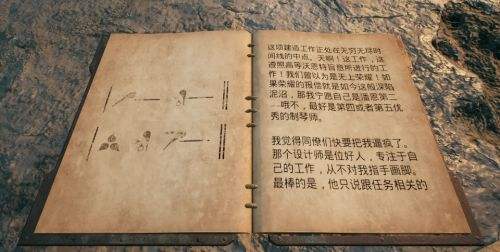 这项建造工作正处在无穷无尽时
间线的中点。天啊！这工作，这
遵照高等沃恩特旨意所进行的工
作！我们曾以为是无上荣耀！如
果荣耀的报偿就是如今这般深陷
泥沼，那我宁愿自己是潘恩第二
——哦不，最好是第四或者第五优
秀的制琴师。
我觉得同僚们快要把我逼疯了。
那个设计师是位好人，专注于自
己的工作，从不对我指手画脚。
最棒的是，他只说跟任务相关的